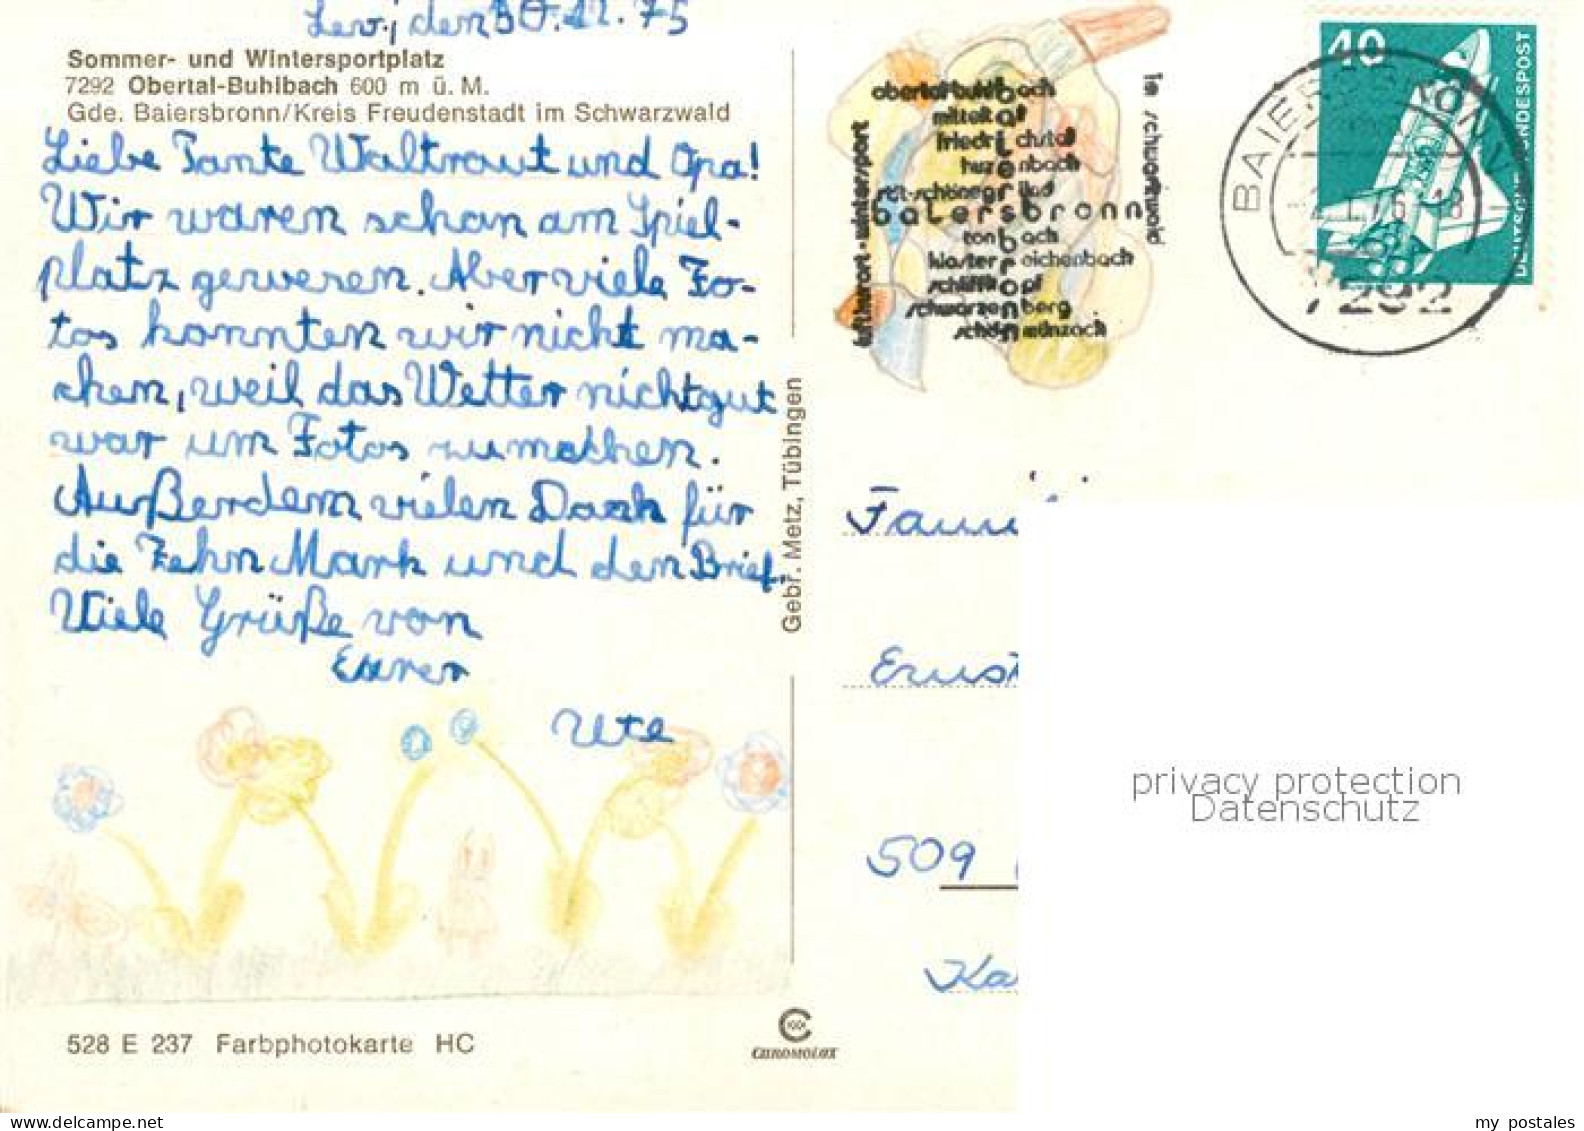 Lev., den 30.12.75
Sommer- und Wintersportplatz
7292 Obertal-Buhlbach 600 m ü. M.
Gde. Baiersbronn/Kreis Freudenstadt im Schwarzwald
Liebe Tante Waltraut und Opa!
Wir waren schon am Spiel-
platz gewesen. Aber viele Fo-
tos konnten wir nicht ma-
chen, weil das Wetter nicht gut
war um Fotos zumachen.
Außerdem vielen Dank für
die Zehn Mark und den Brief.
Viele Grüße von
Eurer
Ute
528 E 237 Farbphotokarte HC
Gebr. Metz, Tübingen
CHROMOLUX
luftkurort · wintersport
obertal-buhlbach
mitteltal
friedrichstal
huzenbach
röt-schönegründ
baiersbronn
tonbach
kloster reichenbach
schliffkopf
schwarzenberg
schönmünzach
im schwarzwald
BAIERSBRONN
7292
40
DEUTSCHE BUNDESPOST
Ernst
509
Ka
privacy protection
Datenschutz
my postales